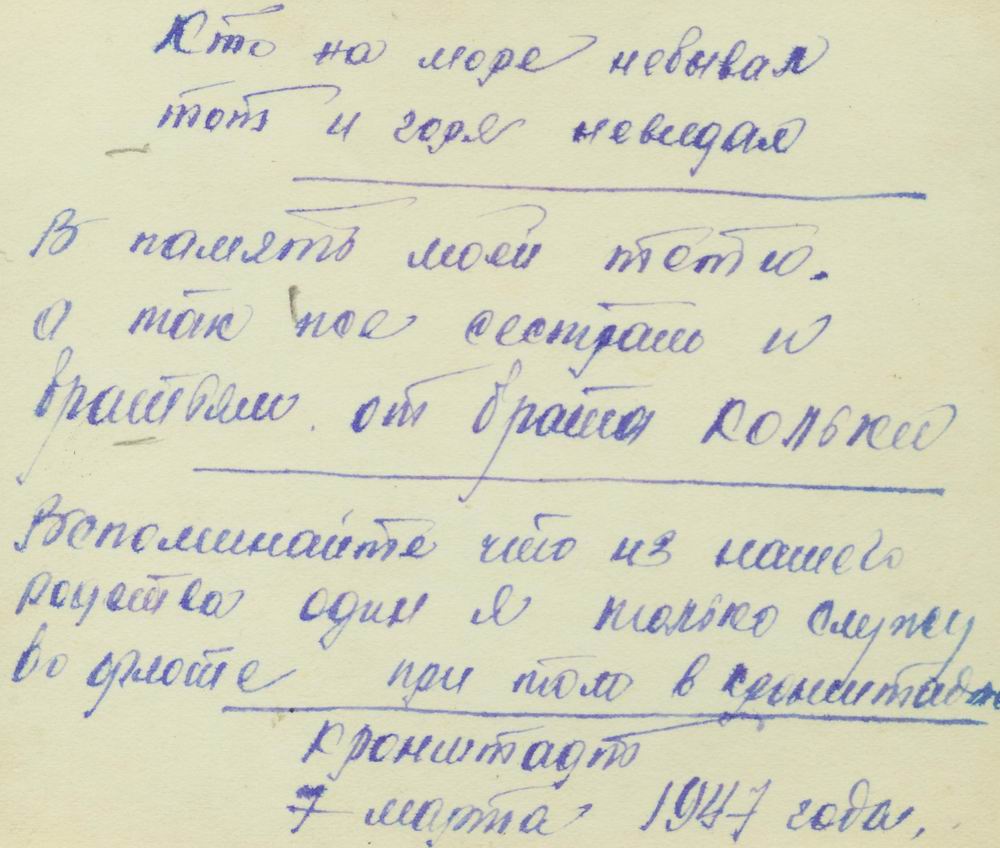 Кто на море небывал
тот и горя невидал
В память моей тёти.
а так же сестрам и
братьям. от брата Кольки
Вспоминайте что из нашего
роцства один я только служу
во флоте при том в кронштадте
Кронштадт
7 марта 1947 года.